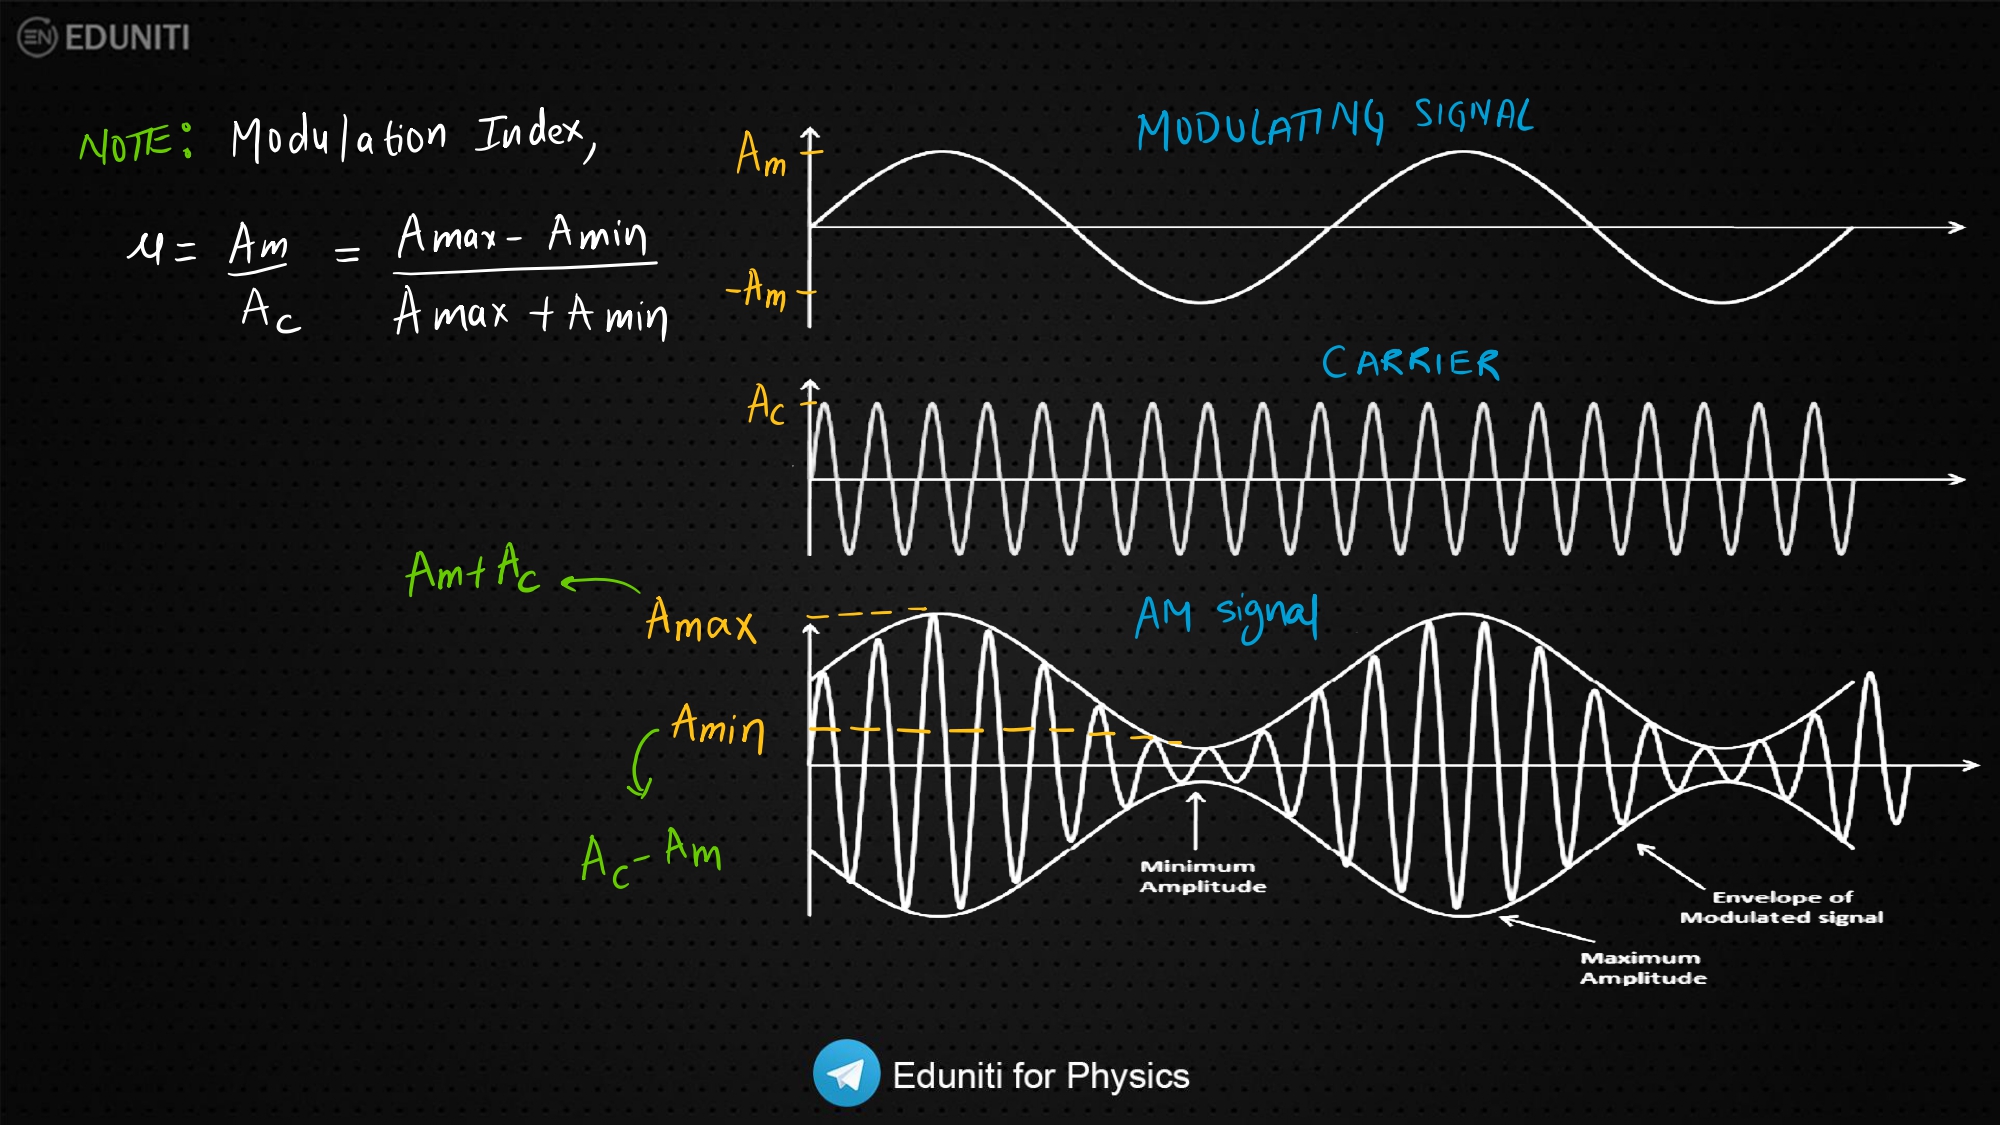 EN EDUNITI
NOTE: Modulation Index,
μ = Am/Ac = Amax - Amin/Amax + Amin
MODULATING SIGNAL
Am
-Am
CARRIER
Ac
Am + Ac
Amax
AM signal
Amin
Ac - Am
Minimum
Amplitude
Envelope of
Modulated signal
Maximum
Amplitude
Eduniti for Physics